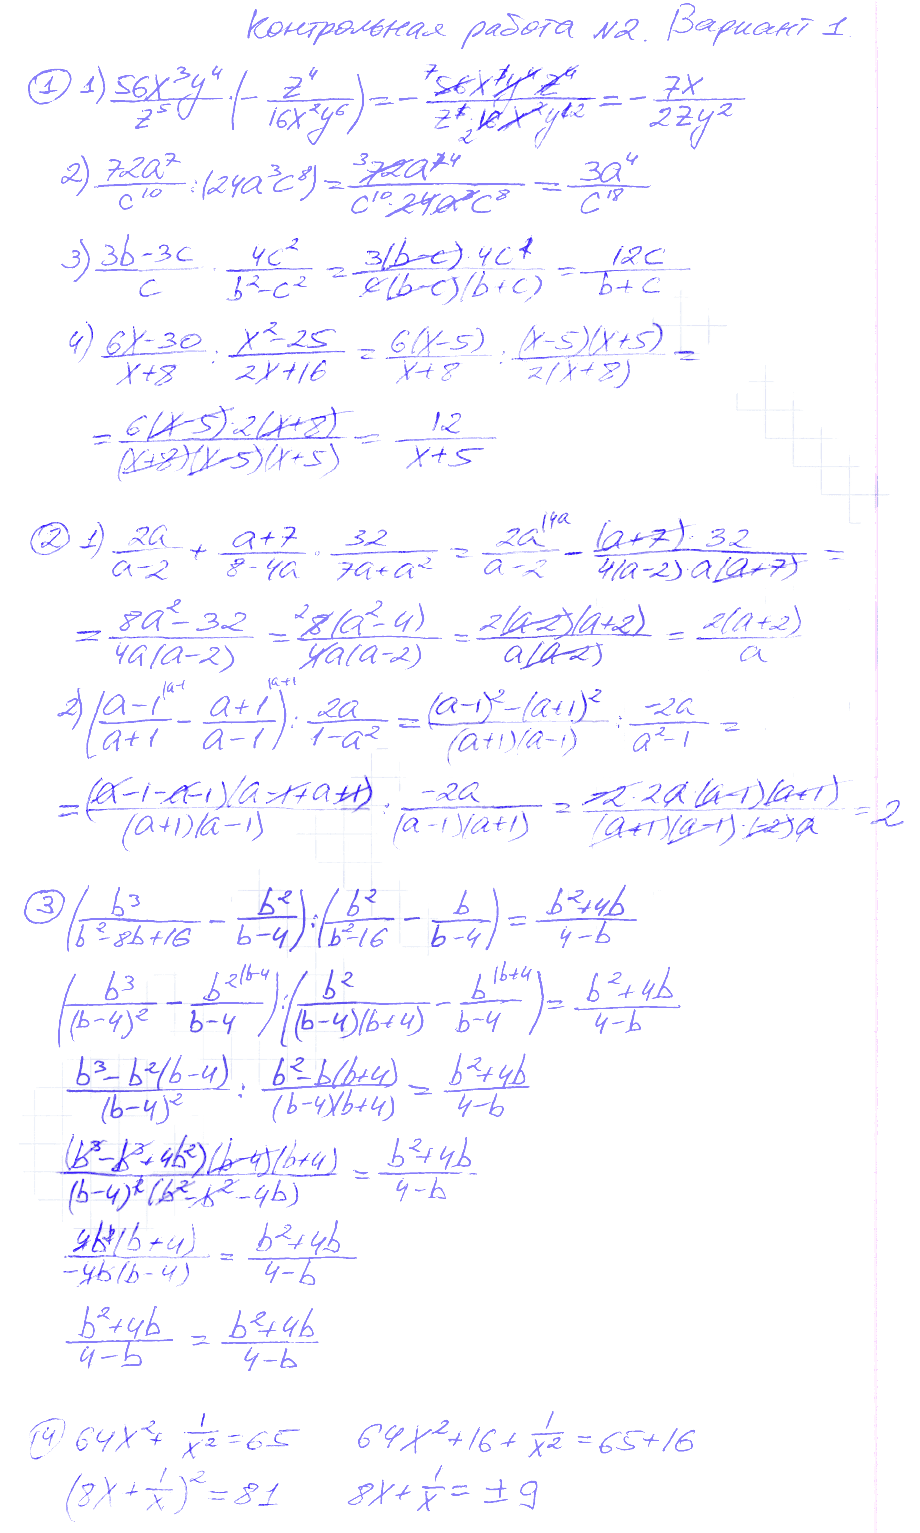 Контрольная работа №2. Вариант 1.
① 1) 56x³y⁴/z⁵ · (− z⁴/16x²y⁶) = − 56x³y⁴z⁴/z⁵·16x²y⁶ = − 7x/2zy²
2) 72a⁷/c¹⁰ : (24a³c⁸) = 72a⁷/c¹⁰·24a³c⁸ = 3a⁴/c¹⁸
3) 3b−3c/c · 4c²/b²−c² = 3(b−c)·4c²/c(b−c)(b+c) = 12c/b+c
4) 6x−30/x+8 : x²−25/2x+16 = 6(x−5)/x+8 : (x−5)(x+5)/2(x+8) =
= 6(x−5)·2(x+8)/(x+8)(x−5)(x+5) = 12/x+5
② 1) 2a/a−2 + a+7/8−4a · 32/7a+a² = 2a|4a/a−2 − (a+7)·32/4(a−2)·a(a+7) =
= 8a²−32/4a(a−2) = 8(a²−4)/4a(a−2) = 2(a−2)(a+2)/a(a−2) = 2(a+2)/a
2) (a−1|a−1/a+1 − a+1|a+1/a−1) : 2a/1−a² = (a−1)²−(a+1)²/(a+1)(a−1) : −2a/a²−1 =
= (a−1−a−1)(a−1+a+1)/(a+1)(a−1) : −2a/(a−1)(a+1) = −2·2a(a−1)(a+1)/(a+1)(a−1)·(−2)a = 2
③ (b³/b²−8b+16 − b²/b−4) : (b²/b²−16 − b/b−4) = b²+4b/4−b
(b³/(b−4)² − b²|b−4/b−4) : (b²/(b−4)(b+4) − b|b+4/b−4) = b²+4b/4−b
b³−b²(b−4)/(b−4)² : b²−b(b+4)/(b−4)(b+4) = b²+4b/4−b
(b³−b³+4b²)(b−4)(b+4)/(b−4)²(b²−b²−4b) = b²+4b/4−b
4b²(b+4)/−4b(b−4) = b²+4b/4−b
b²+4b/4−b = b²+4b/4−b
④ 64x²+ 1/x² = 65 64x²+16+ 1/x² = 65+16
(8x+ 1/x)² = 81 8x+ 1/x = ±9